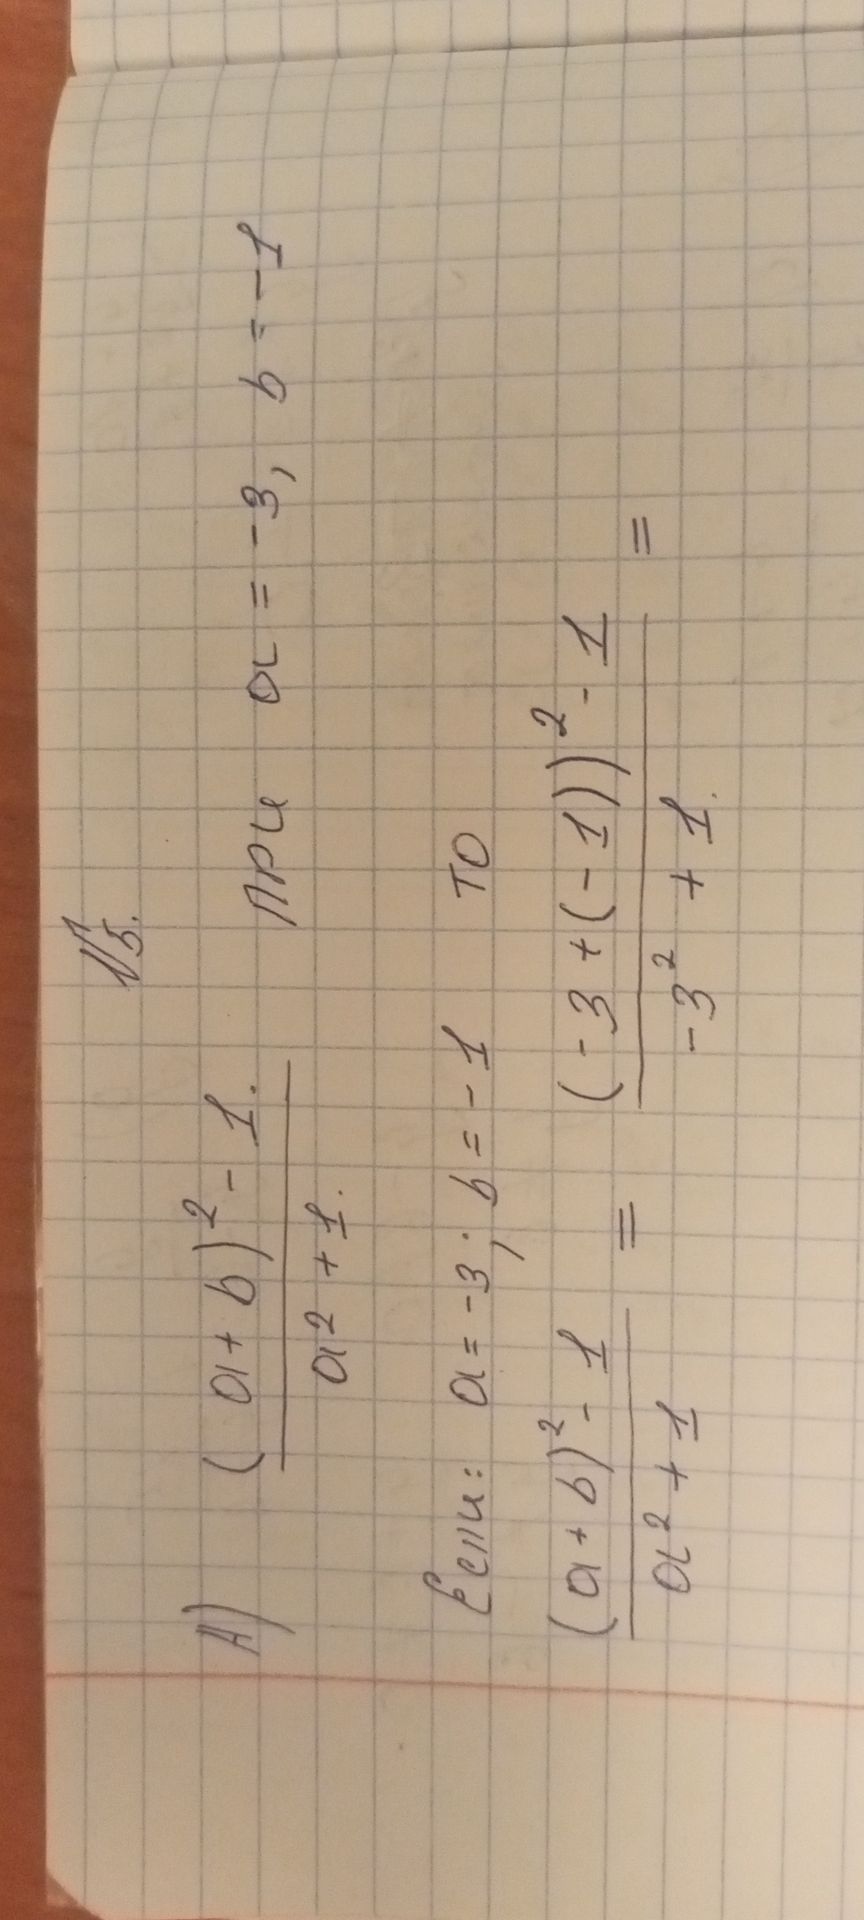 №5.
А) (a + b)² - 1. / a² + 1. при a = -3, b = -1
Если: a = -3; b = -1 то
(a + b)² - 1 / a² + 1 = (-3 + (-1))² - 1 / -3² + 1. =